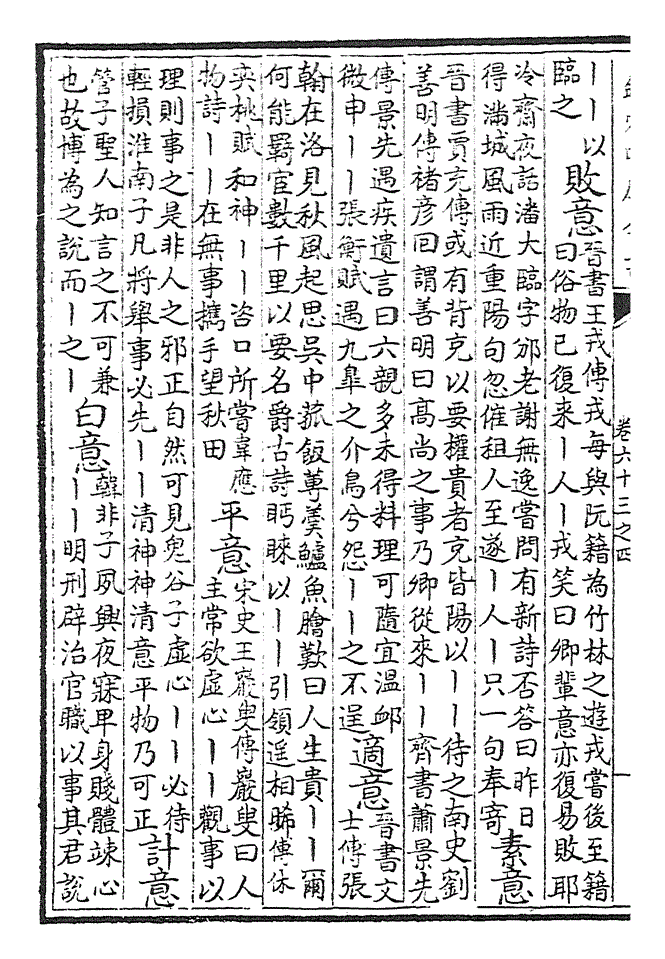 卷六十三之四
一
丨丨以
臨之
敗意
晉書王戎傳戎每與阮籍為竹林之遊戎嘗後至籍
曰俗物已復來丨人丨戎笑曰卿輩意亦復易敗耶
冷齋夜話潘大臨字邠老謝無逸嘗問有新詩否答曰昨日
得滿城風雨近重陽句忽催租人至遂丨人丨只一句奉寄
素意
晉書賈充傳或有背充以要權貴者充皆陽以丨丨待之南史劉
善明傳褚彥回謂善明曰高尚之事乃卿從來丨丨齊書蕭景先
傳景先遇疾遺言曰六親多未得料理可隨宜溫卹
微申丨丨張衡賦遇九臯之介鳥兮怨丨丨之不逞
適意
晉書文
士傳張
翰在洛見秋風起思吳中菰飯蓴羹鱸魚膾歎曰人生貴丨丨爾
何能羈官數千里以要名爵古詩眄睞以丨丨引領遥相睎傅休
奕桃賦和神丨丨咨口所嘗韋應
物詩丨丨在無事攜手望秋田
平意
宋史王巖叟傳巖叟曰人
主常欲虛心丨丨觀事以
理則事之是非人之邪正自然可見鬼谷子虛心丨丨必待
輕損淮南子凡將舉事必先丨丨清神神清意平物乃可正
計意
管子聖人知言之不可兼
也故博為之說而丨之丨
白意
韓非子夙興夜寐卑身賤體竦心
丨丨明刑辟治官職以事其君說